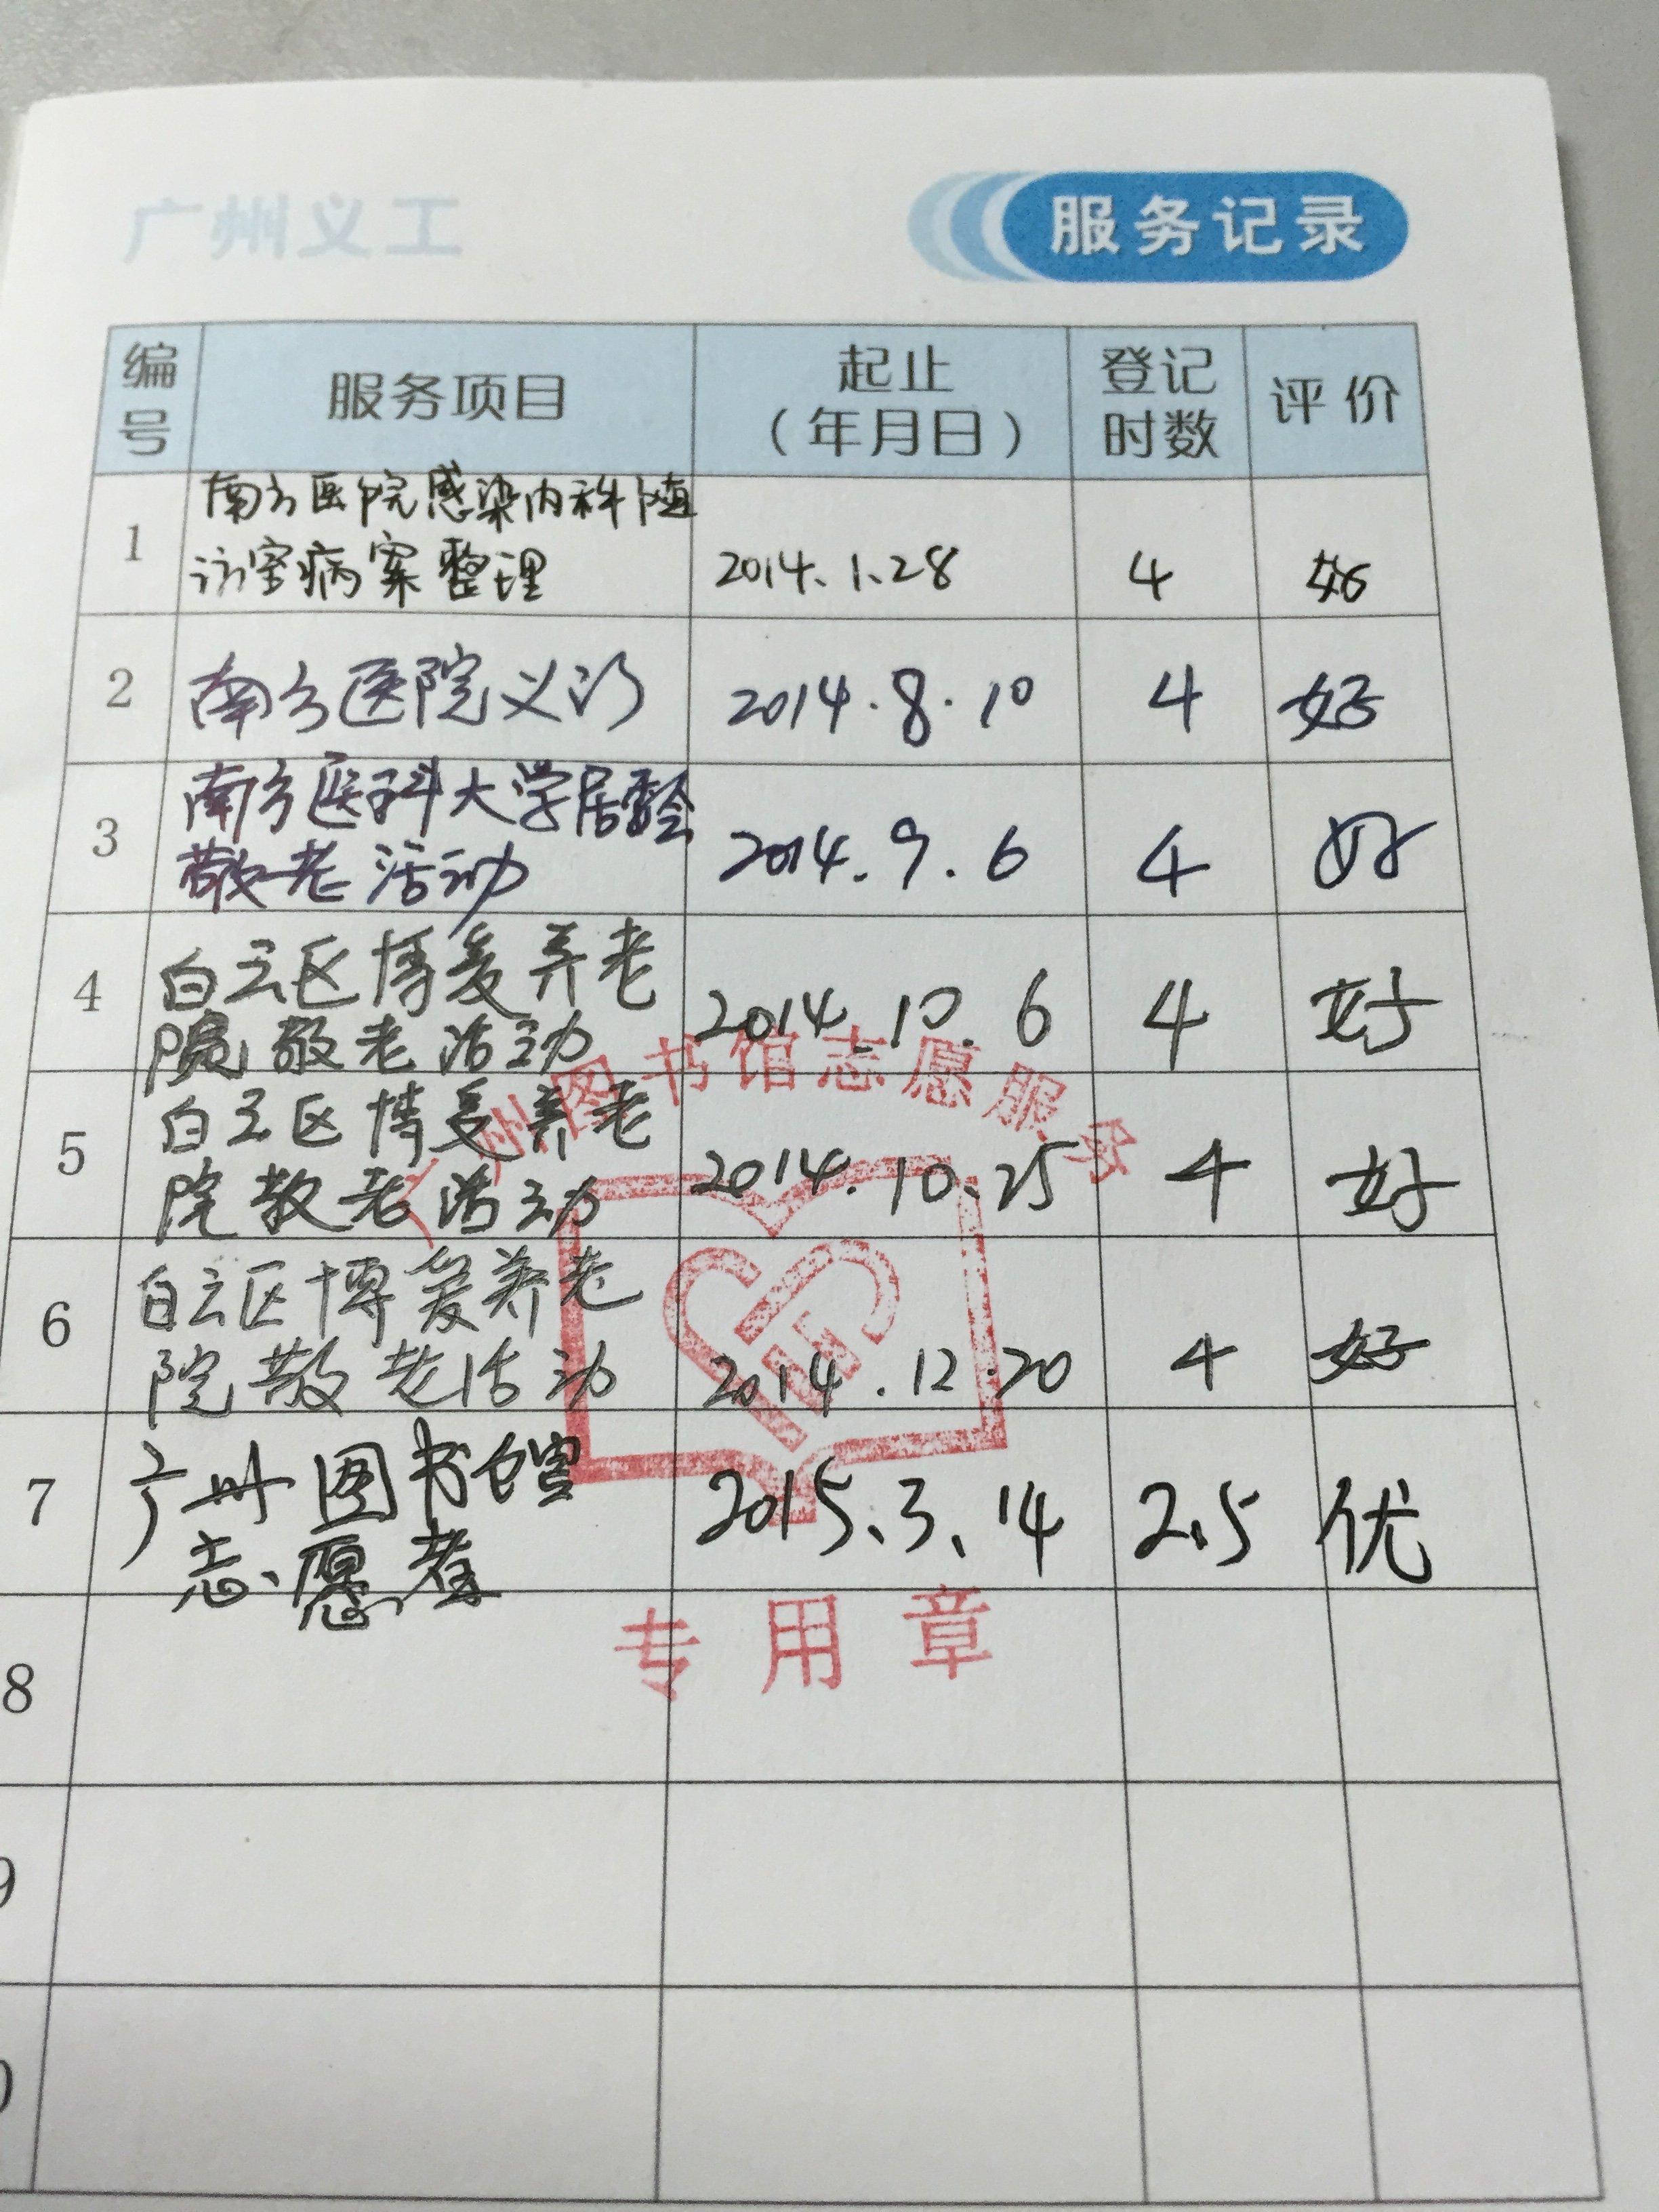 广州义工
服务记录
编号
服务项目
起止
（年月日）
登记
时数
评价
1
南方医院感染内科随
访室病案整理
2014.1.28
4
好
2
南方医院义诊
2014.8.10
4
好
3
南方医科大学居龄会
敬老活动
2014.9.6
4
好
4
白云区博爱养老
院敬老活动
2014.10.6
4
好
5
白云区博爱养老
院敬老活动
2014.10.25
4
好
6
白云区博爱养老
院敬老活动
2014.12.20
4
好
7
广州图书馆
志愿者
2015.3.14
2.5
优
广州图书馆志愿服务
专用章
8
9